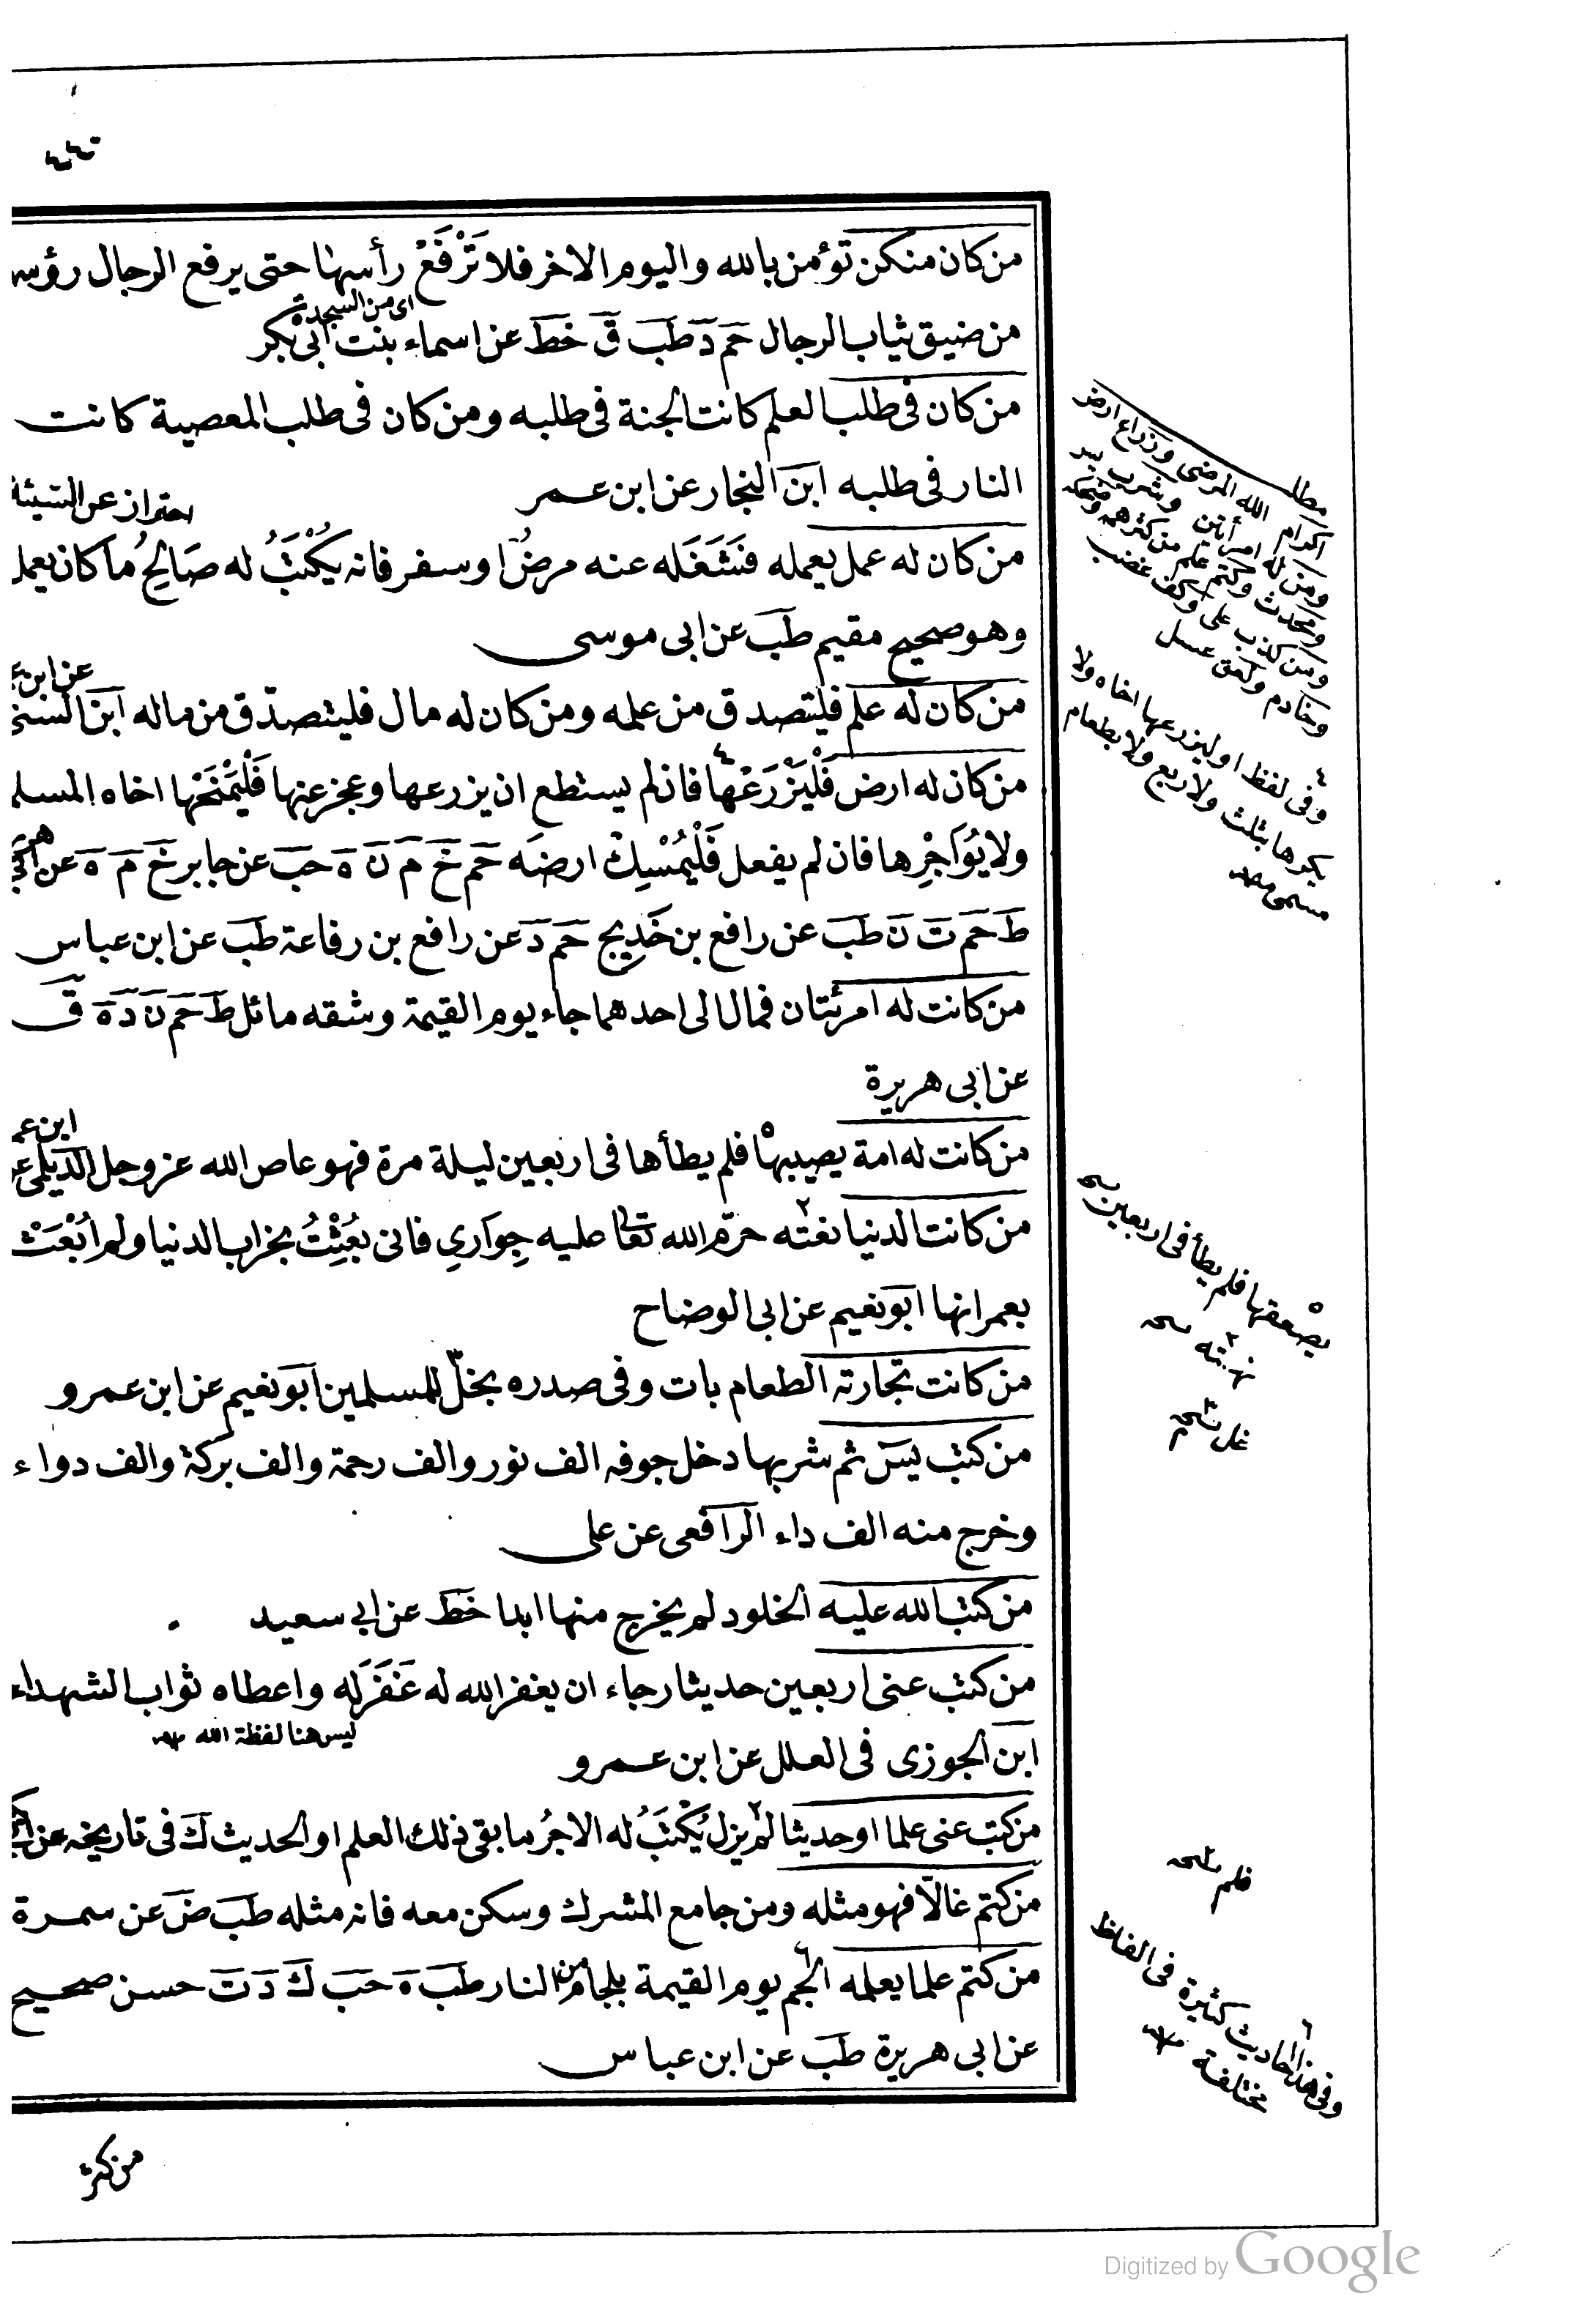 من كان منكن تؤمن بالله واليوم الاخر فلا تَرْفَعْ رأسها حتى يرفع الرجال رؤسه
اى من السجدة
من ضيق ثياب الرجال حم د طب ق خط عن اسماء بنت ابى بكر
من كان فى طلب العلم كانت الجنة فى طلبه ومن كان فى طلب المعصية كانت
النار فى طلبه ابن النجار عن ابن عمر
احتراز عن السيئة
من كان له عمل يعمله فَشَغَله عنه مرضٌ او سفر فانه يُكْتَبُ له صَالِحُ ما كان يعمل
وهو صحيح مقيم طب عن ابى موسى
من كان له علم فليتصدق من علمه ومن كان له مال فليتصدق من ماله ابن السنى
عن ابن ع
من كان له ارض فَلْيَزْرَعْها٤ فان لم يستطع ان يزرعها وعجز عنها فَلْيَمْنَحْها اخاه المسلم
ولا يُؤَاجِرْها فان لم يفعل فَلْيُمْسِكْ ارضه حم خ م ن ه حب عن جابر خ م ه عن ابى هري
ط حم ت ن طب عن رافع بن خَدِيج حم د عن رافع بن رفاعة طب عن ابن عباس
من كانت له امرئتان فمال الى احدهما جاء يوم القيمة وشقه مائل ط حم ن د ه ق
عن ابى هريرة
من كانت له امة يصيبها٥ فلم يطأها فى اربعين ليلة مرة فهو عاص الله عز وجل الديلمى عن
ابن عم
من كانت الدنيا نغته٢ حرّم الله تعالى عليه جِوَارِي فانى بُعِثْتُ بخراب الدنيا ولم اُبْعَثْ
بعمرانها ابو نعيم عن ابى الوضاح
من كانت تجارته الطعام بات وفى صدره بخلّ٣ للمسلمين ابو نعيم عن ابن عمرو
من كتب يس ثم شربها دخل جوفه الف نور والف رحمة والف بركة والف دواء
وخرج منه الف داء الرافعى عن على
من كتب الله عليه الخلود لم يخرج منها ابدا خط عن ابى سعيد
من كتب عنى اربعين حديثا رجاء ان يغفر الله له غَفَرَ له واعطاه ثواب الشهداء
ليس هنا لفظة الله
ابن الجوزى فى العلل عن ابن عمرو
من كتب عنى علما او حديثا لم يزل يُكْتَبُ له الاجرُ ما بقى ذلك العلم او الحديث ك فى تاريخه عن
من كتم غالّا فهو مثله ومن جامع المشرك وسكن معه فانه مثله طب ض عن سمرة
من كتم علما يعلمه الجم٦ يوم القيمة بلجام من النار طب ه حب ك د ت حسن صحيح
عن ابى هريرة طب عن ابن عباس
من كثر
مطلب
اكرام الله المرضى وزراع ارض
ومن له امرأتين وشرب
ومحدث وكتم علم من كثر همه وضحكه
ومن كذب على وكف غضب
وخادم ولعق عسل
٤ وفى لفظ او ليزرعها اخاه ولا
يكرها بثلث ولا ربع ولا بطعام
مسمى
٥ يصعقها فلم يطأ فى اربعين
نهمته
غل
فلم
٦ وفى هذا احاديث كثيرة فى الفاظ
مختلفة
Digitized by Google